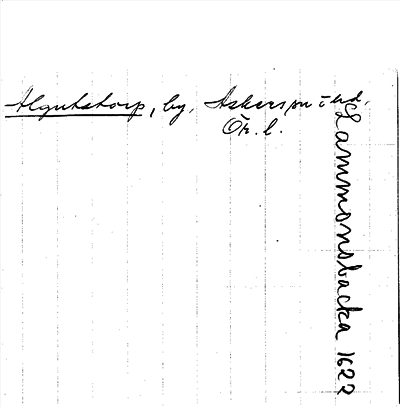 Algutstorp, by, Askers sn o hd.
Ör. l.
Lammonobacka 1622